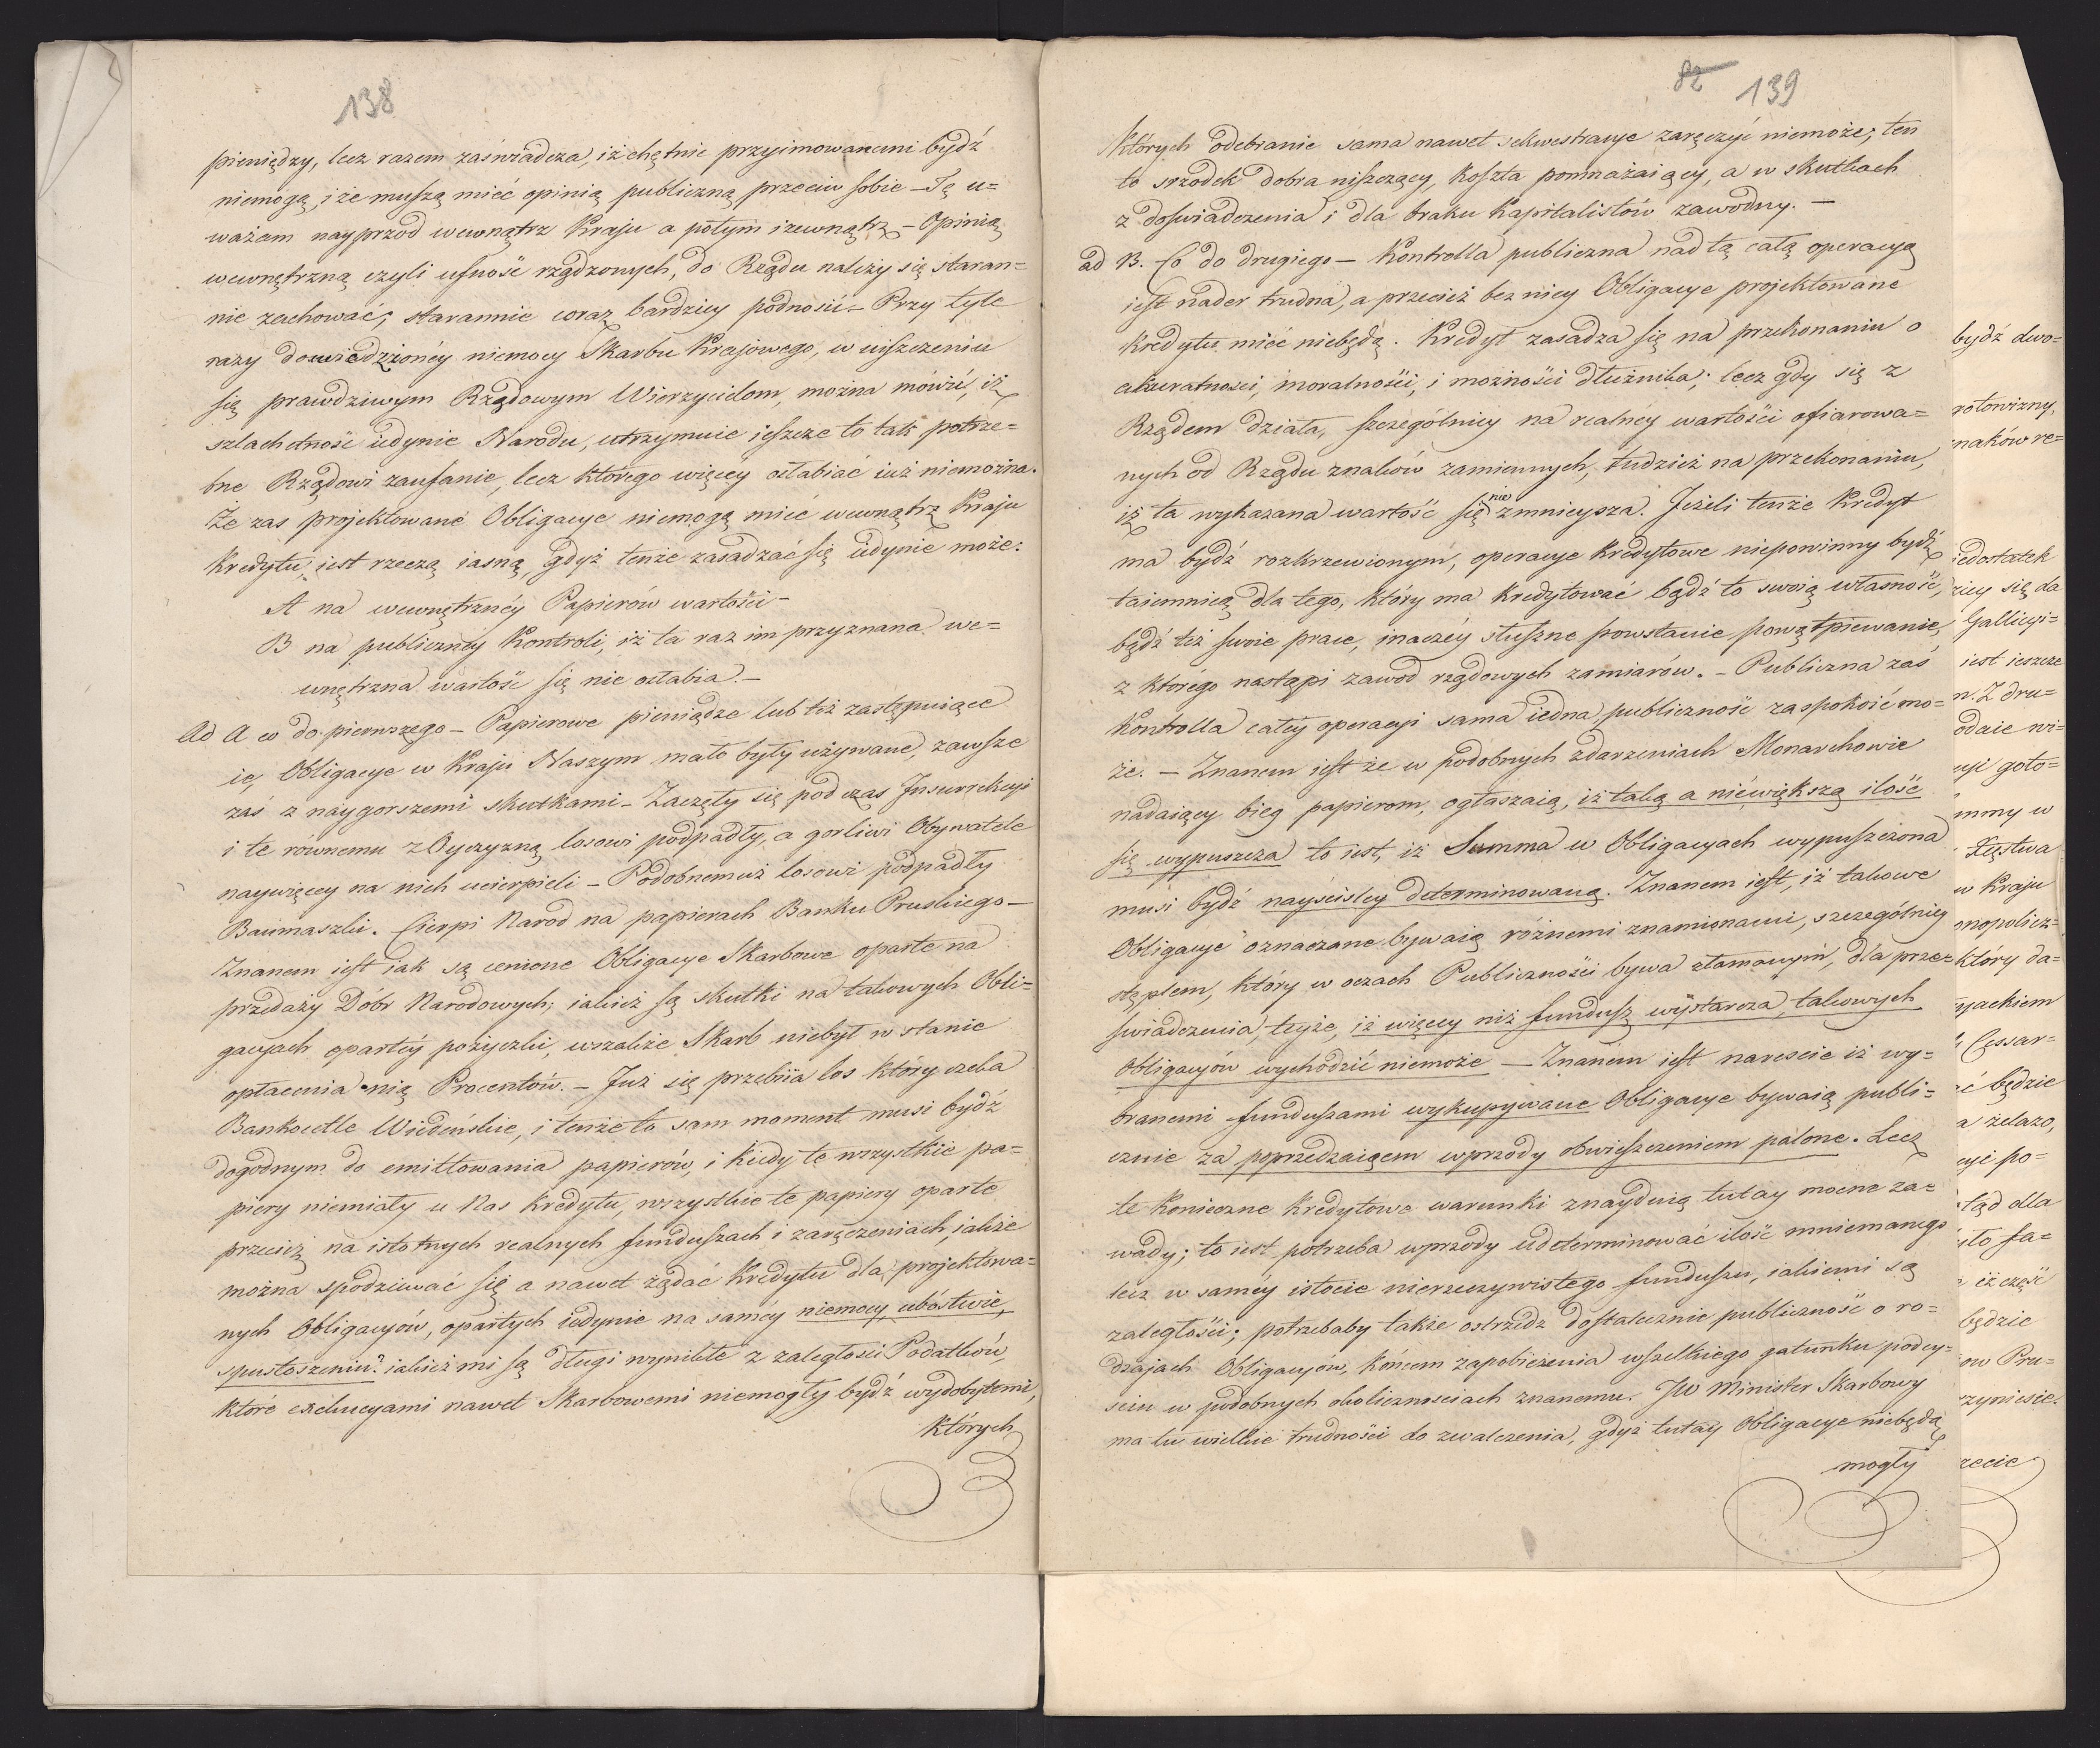 138
pieniędzy, lecz razem zaświadcza, iż chętnie przyimowanemi bydź
niemogą, i że muszą mieć opinią publiczną przeciw sobie – Tę u=
ważam nayprzód wewnątrz Kraju a potym i zewnątrz – Opinią
wewnętrzną czyli ufność rządzonych, do Rządu należy się staran=
nie zachować; starannie coraz bardziey podnosić – Przy tyle
razy dowiedzionéy niemocy Skarbu Krajowego, w uiszczeniu
się prawdziwym Rządowym Wierzycielom, można mówić, iż
szlachetność iedynie Narodu, utrzymuie ieszcze to tak potrze=
bne Rządowi zaufanie, lecz którego więcéy osłabiać iuż niemożna.
Że zas projektowane Obligacye niemogą mieć wewnątrz Kraju
Kredytu, iest rzeczą iasną, gdyż tenże zasadzać się iedynie może:
A na wewnętrznéy Papierów wartości –
B na publicznéy Kontroli, iż ta raz im przyznana we=
wnętrzna wartość się nie osłabia. –
Ad A co do pierwszego – Papierowe pieniądze lub też zastępuiące
ie, Obligacye w Kraju Naszym mało były używane, zawsze
zaś z naygorszemi skutkami – Zaczęły się podczas Insurrekcyi
i te równemu z Oyczyzną losowi podpadły, a gorliwi Obywatele
naywięcey na nich ucierpieli – Podobnemuż losowi podpadły
Baumaszki. Cierpi Naród na papierach Banku Pruskiego –
Znanem iest iak są cenione Obligacye Skarbowe oparte na
przedaży Dóbr Narodowych; iakież są skutki na takowych Obli=
gacyach opartéy pożyczki, wszakże Skarb niebył w stanie
opłacenia nią Procentów. – Już się przebiia los który czeka
Bankocetle Wiedeńskie, i tenże to sam moment musi bydź
dogodnym do emittowania papierów, i kiedy te wszystkie pa=
piery niemiały u Nas Kredytu, wszystkie te papiery oparte
przecież na istotnych realnych funduszach i zaręczeniach, iakże
można spodziewać się a nawet żądać Kredytu dla projektowa=
nych Obligacyów, opartych iedynie na saméy niemocy, ubóstwie,
spustoszeniu? iakież mi są długi wynikłe z zaległosci Podatków,
które exekucyami nawet Skarbowemi niemogły bydź wydobytemi,
których
82 139
których odebranie sama nawet sekwestracye zaręczyć niemoże; ten
to srzodek dobra niszczący, koszta pomnażaiący, a w skutkach
z doswiadczenia i dla braku Kapitalistów zawodny. –
ad B. Co do drugiego – Kontrolla publiczna nad tą całą operacyą
iest nader trudna, a przecież bez niey Obligacye projektowane
Kredytu mieć niebędą. Kredyt zasadza się na przekonaniu o
akuratnosci, moralności, i możności dłużnika; lecz gdy się z
Rządem działa, szczególniey na realnéy wartości ofiarowa=
nych od Rządu znaków zamiennych, tudzież na przekonaniu,
nie
iż ta wykazana wartość się zmnieysza. Jeżeli tenże Kredyt
ma bydź rozkrzewionym, operacye kredytowe niepowinny bydź
taiemnicą dla tego, który ma kredytować bądź to swoią własność,
bądź też swoie prace, inaczéy słuszne powstanie powątpiewanie,
z którego nastąpi zawód rządowych zamiarów. – Publiczna zaś
Kontrolla całéy operacyi sama iedna publiczność zaspokoić mo=
że. – Znanem iest że w podobnych zdarzeniach Monarchowie
nadaiący bieg papierom, ogłaszaią, iż taką a niewiększą ilość
się wypuszcza to iest, iż Summa w Obligacyach wypuszczona
musi bydź nayściśley determinowaną. Znanem iest, iż takowe
Obligacye oznaczane bywaią różnemi znamionami, szczególniey
stęplem, który w oczach Publiczności bywa złamanym, dla prze=
świadczenia teyże, iż więcey niż fundusz wystarcza, takowych
Obligacyów wychodzić niemoże – Znanem iest nareście iż wy=
branemi funduszami wykupywane Obligacye bywaią publi=
cznie za poprzedzaiącem wprzódy obwieszczeniem palone. Lecz
te konieczne kredytowe warunki znayduią tutay mocne za=
wady; to iest potrzeba wprzódy udeterminować ilość mniemanego
lecz w saméy istocie nierzeczywistego funduszu, iakiemi są
zaległości; potrzebaby także ostrzedz dostatecznie publiczność o ro=
dzajach Obligacyów, końcem zapobieżenia wszelkiego gatunku podey=
sciu w podobnych okolicznosciach znanemu. JW Minister Skarbowy
ma tu wielkie trudności do zwalczenia, gdyż tutay Obligacye niebędą
mogły
bydź dwo=
rotowizny,
naków re=
iedostatek
ziey się da
Gallicyi=
iest ieszcze
n. Z dru=
odaie wi=
cyi goto=
mmy w
Xięstwa
w Kraju
onopolicz=
który da=
yackiem
Cessar=
ć będzie
a żelazo,
cyi po=
ląd dla
ito fa=
iż część
będzie
ow Pru=
zyniesie.
zecie